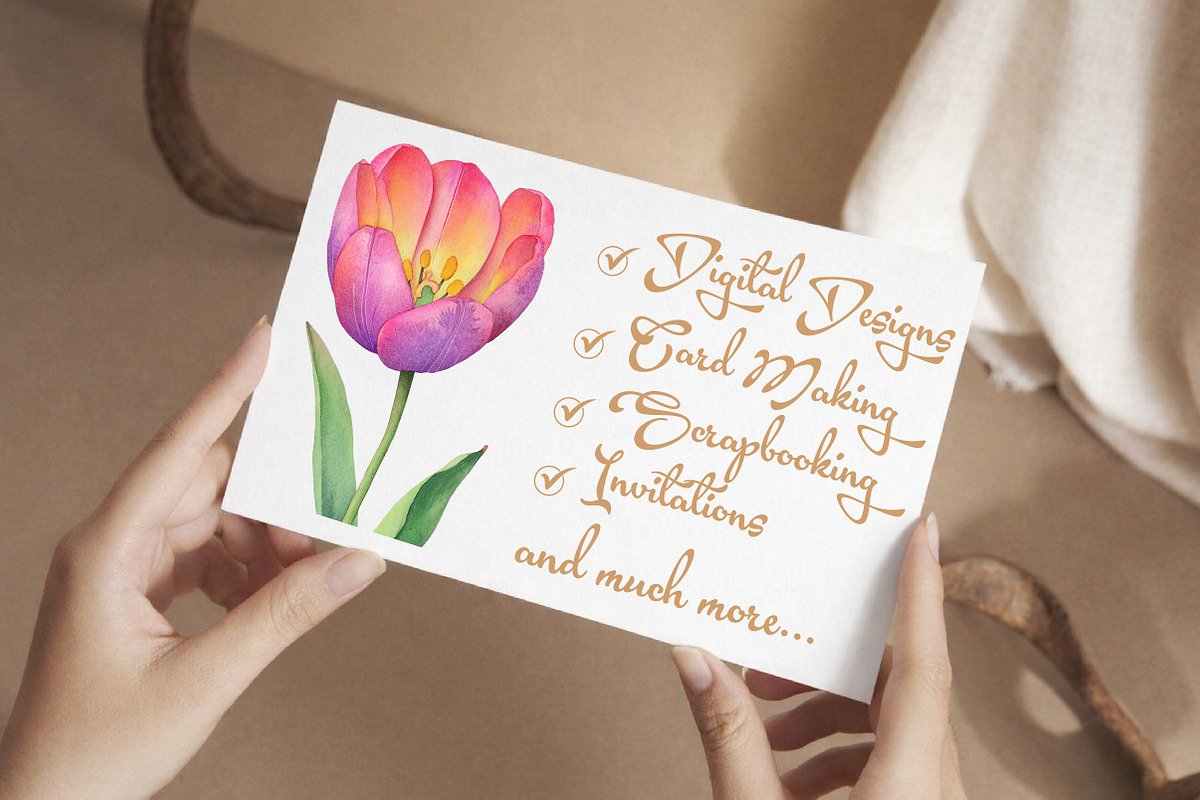 Digital Designs
Card Making
Scrapbooking
Invitations
and much more...